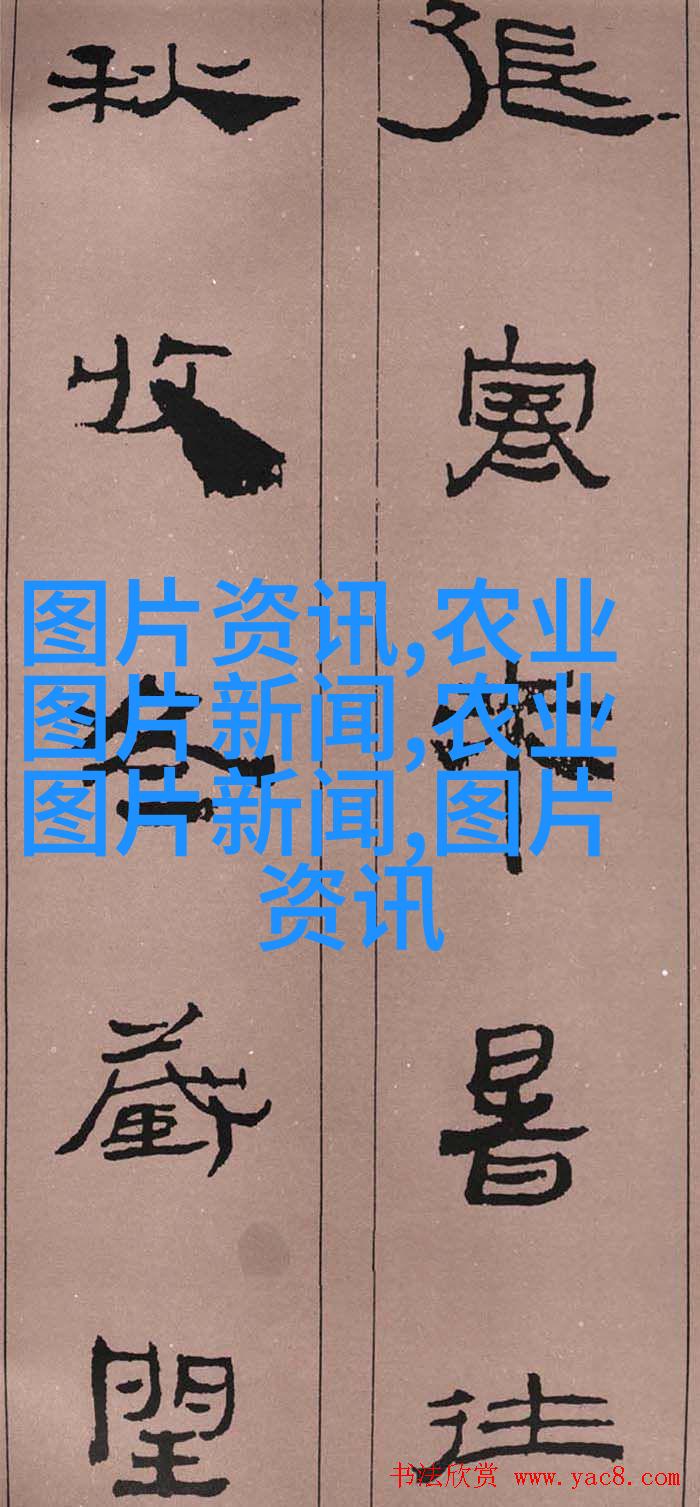 張寒來暑往
秋收冬藏閏
图片资讯,农业
图片新闻,农业
图片新闻,图片
资讯
书法欣赏 www.yac8.com